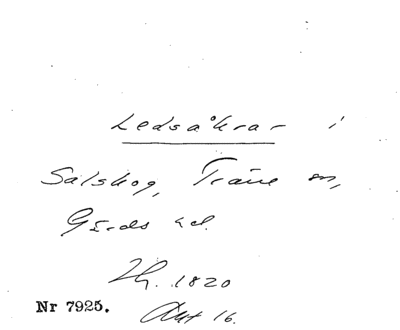 Ledsåkrar i
Salskog, Träne sn,
Gärds hd.
Th. 1820
Nr 7925.
Akt 16.